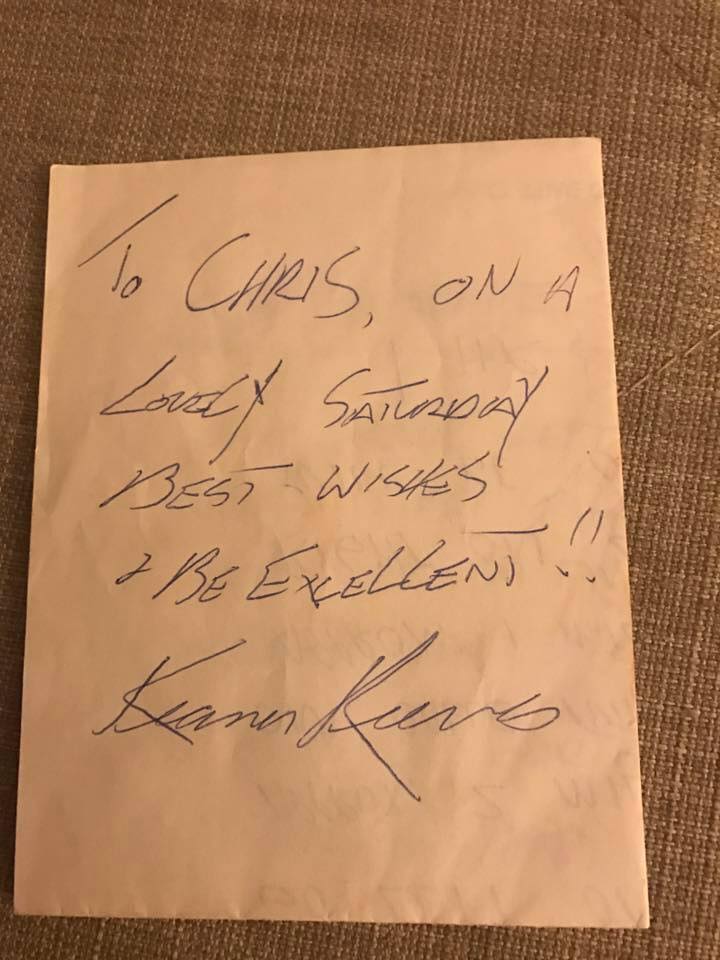 To CHRIS, ON A
LOVELY SATURDAY
BEST WISHES
& BE EXCELLENT!!
Keanu Reeves